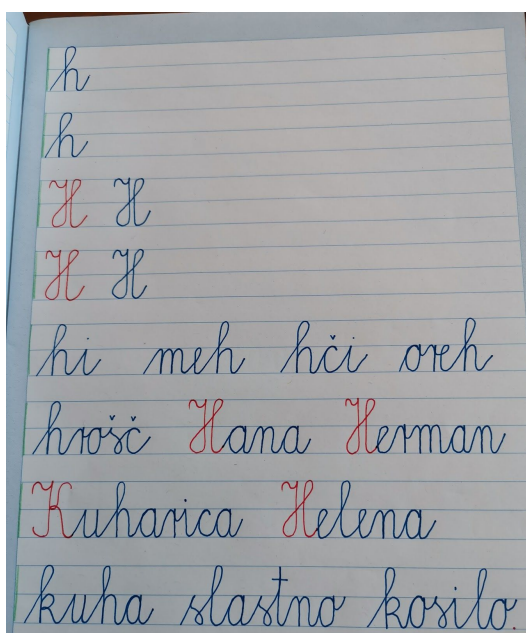 h
h
H H
H H
hi meh hči oreh
hrošč Hana Herman
Kuharica Helena
kuha slastno kosilo.